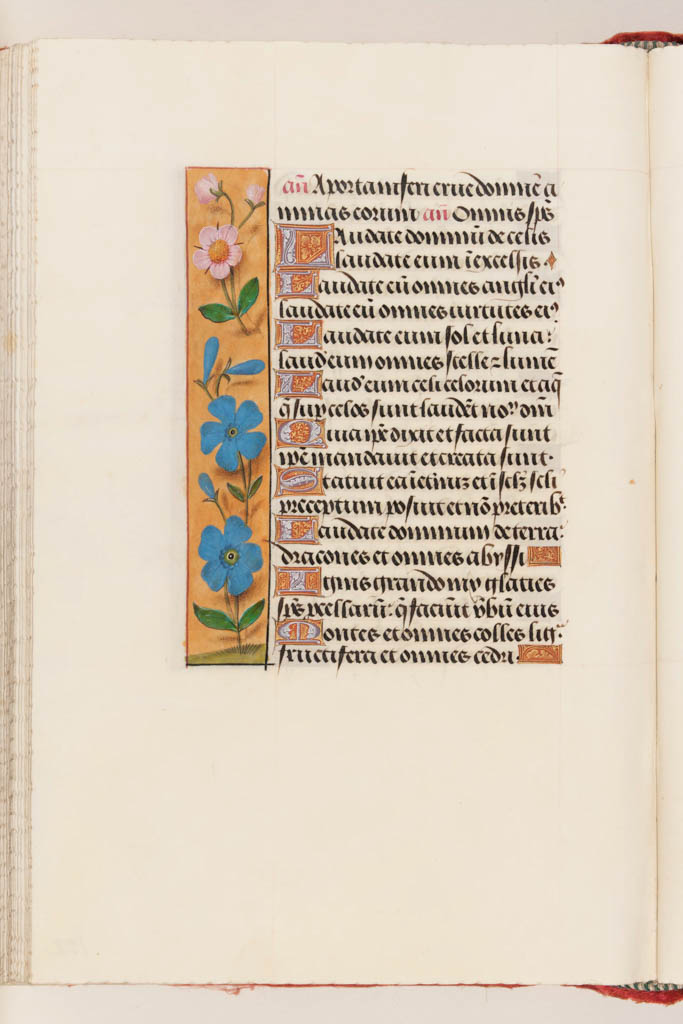 an̄ A porta inferi erue domine a
nimas eorum an̄ Omnis sp̄s
Laudate dominū de celis
laudate eum ī excelsis
Laudate eū omnes angli ei9
laudate eū omnes uirtutes ei9
Laudate eum sol et luna:
laud' eum omnes stelle ⁊ lumē
Laud' eum celi celorum et aq̄
q̄ sup celos sunt laudēt no9 dn̄i
Quia ip̄e dixit et facta sunt
ip̄e mandauit et creata sunt.
Statuit ea ī eternū et ī sc̄lꝫ sc̄li
preceptum posuit et nō preterib9
Laudate dominum de terra:
dracones et omnes abyssi
Ignis grando nix glacies
sp̄s p̄cellarū: q̄ faciūt ṽbū eius
Montes et omnes colles lig9
fructifera et omnes cedri.